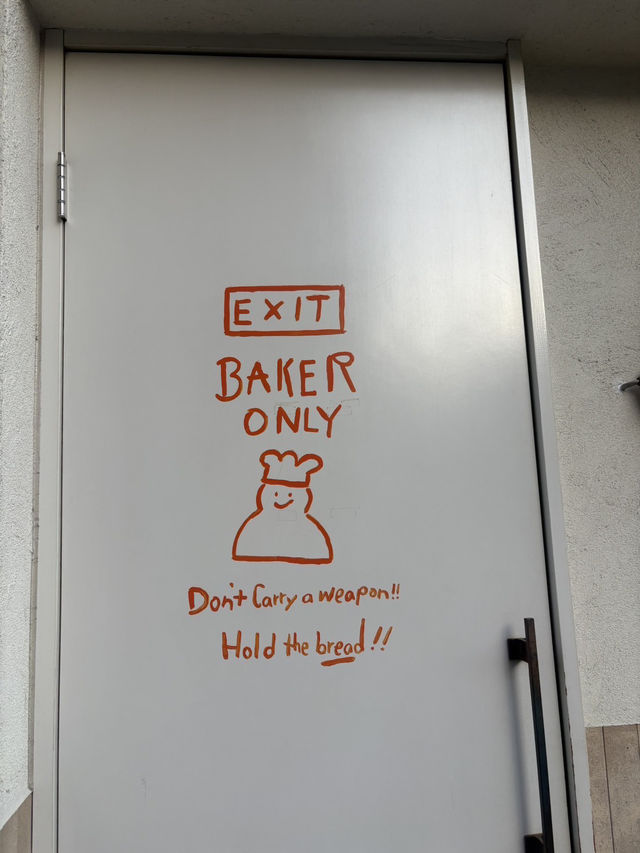 EXIT
BAKER
ONLY
Don't Carry a weapon!!
Hold the bread!!